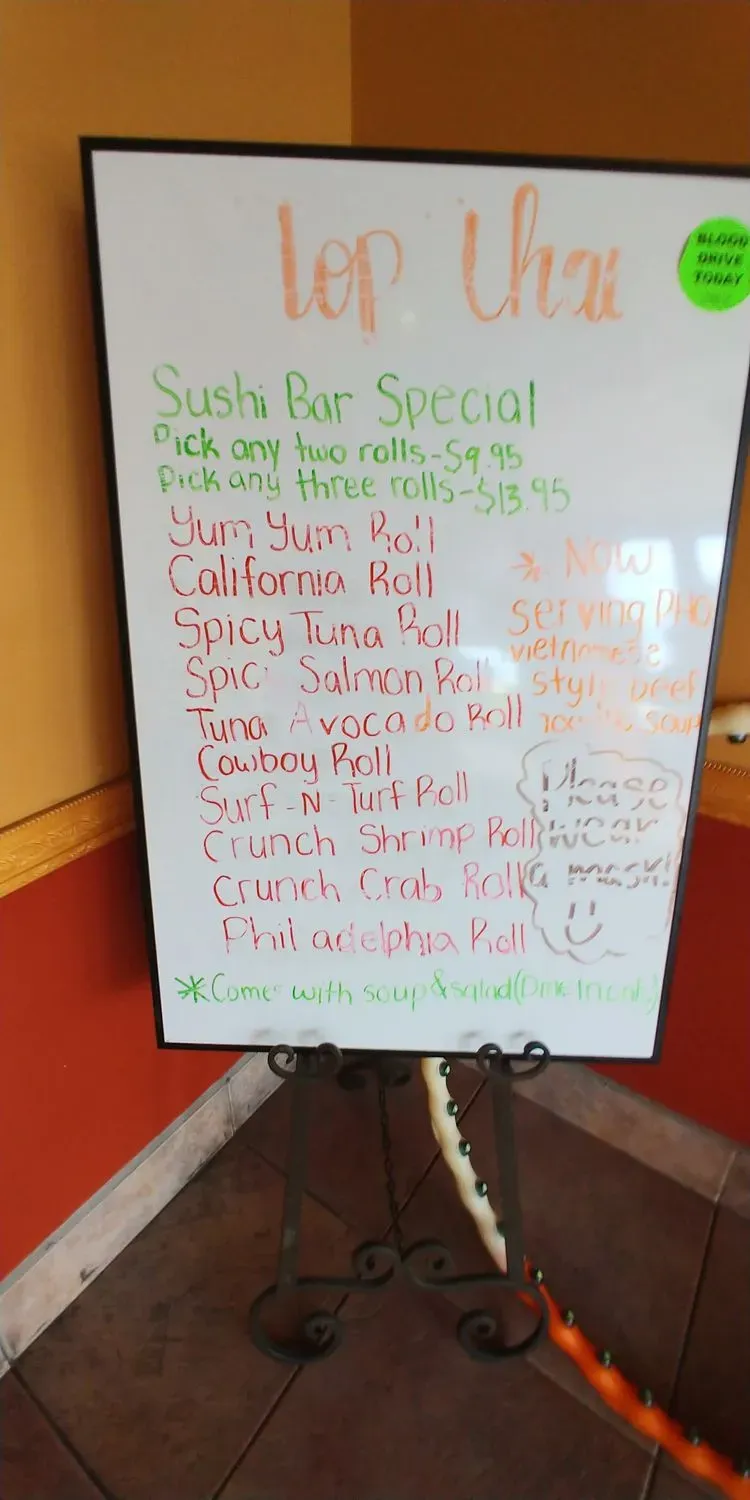 Top Thai
BLOOD
DRIVE
TODAY
Sushi Bar Special
Pick any two rolls-$9.95
Pick any three rolls-$13.95
Yum Yum Roll
California Roll
Spicy Tuna Roll
Spic Salmon Roll
Tuna Avocado Roll
Cowboy Roll
Surf-N-Turf Roll
Crunch Shrimp Roll
Crunch Crab Roll
Philadelphia Roll
* NOW
serving PHO
vietnamese
style beef
soup
Please
wear
a mask!
*Come with soup & salad (Dine In only)